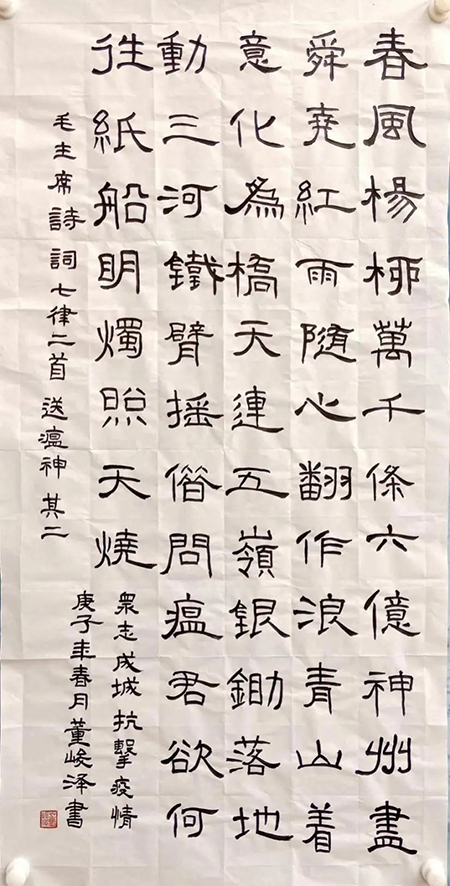 春風楊柳萬千條六億神州盡
舜堯紅雨隨心翻作浪青山着
意化爲橋天連五嶺銀鋤落地
動三河鐵臂搖借問瘟君欲何
往紙船明燭照天燒
毛主席詩詞七律二首送瘟神其二
衆志成城抗擊疫情
庚子年春月董峻泽書